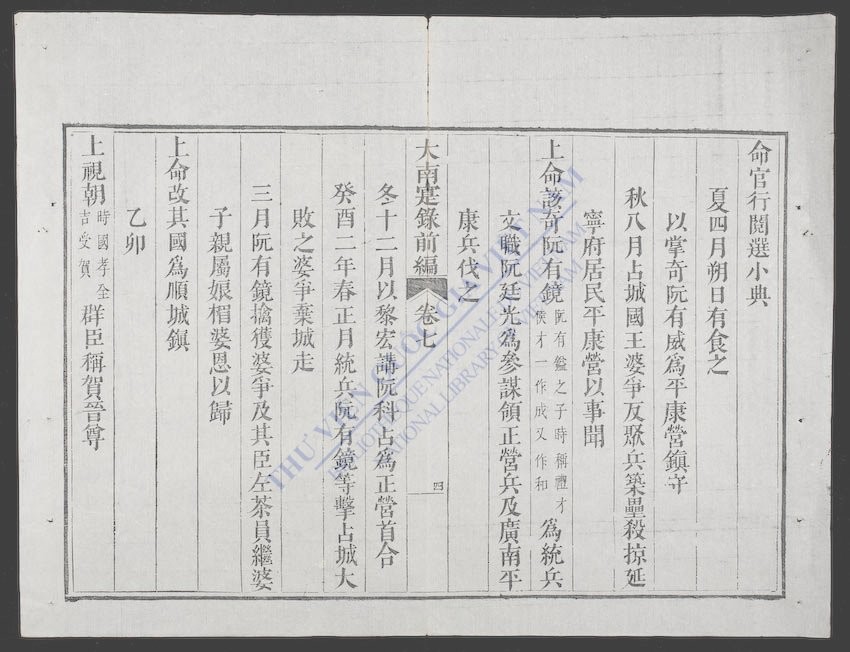 命官行閱選小典
夏四月朔日有食之
以掌奇阮有威為平康營鎮守
秋八月占城國王婆爭反聚兵築壘殺掠延
寧府居民平康營以事聞
上命該奇阮有鏡阮有鎰之子時稱禮才侯才一作成又作和為統兵
文職阮廷光為參謀領正營兵及廣南平
康兵伐之
大南寔錄前編 卷七 四
冬十二月以黎宏講阮科占為正營首合
癸酉二年春正月統兵阮有鏡等擊占城大
敗之婆爭棄城走
三月阮有鏡擒獲婆爭及其臣左茶員繼婆
子親屬娘楣婆恩以歸
上命改其國為順城鎮
乙卯
上視朝時國孝全吉受賀群臣稱賀晉尊
THƯ VIỆN QUỐC GIA VIỆT NAM
BIBLIOTHEQUE NATIONALE DU VIETNAM
NATIONAL LIBRARY OF VIETNAM